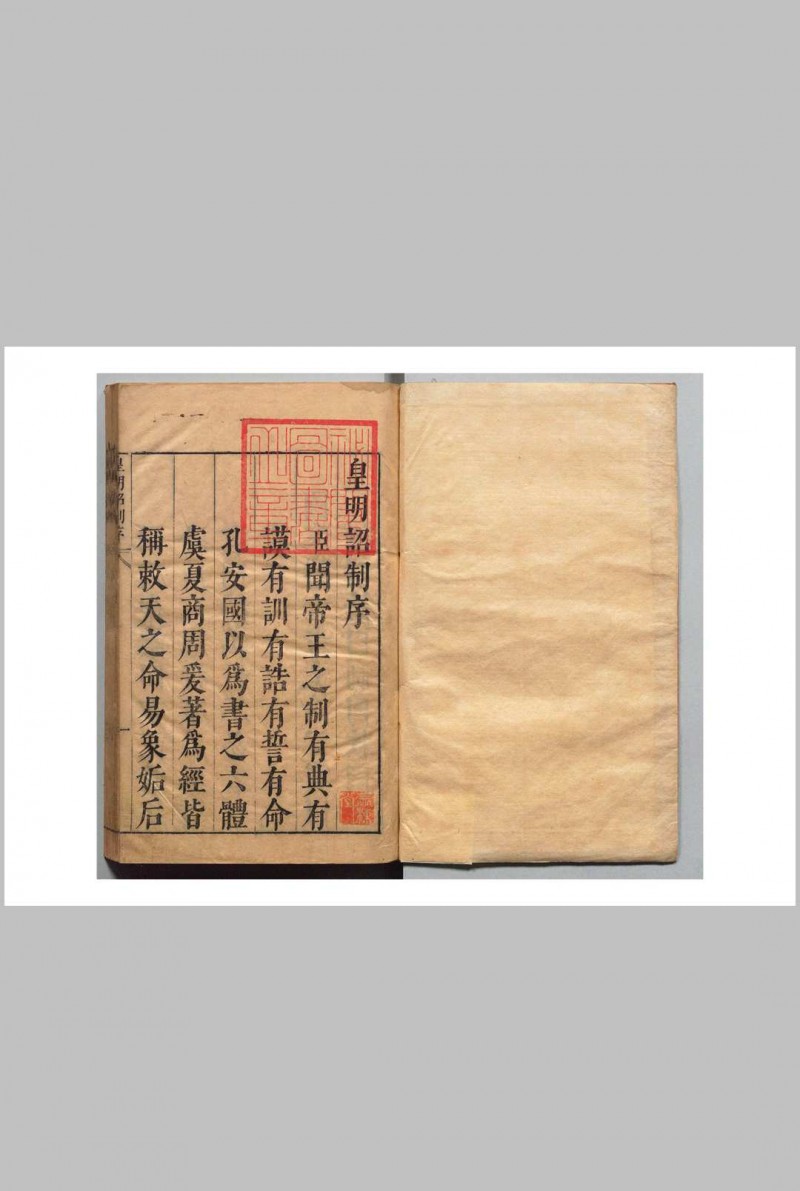 皇明詔制序
臣聞帝王之制有典有
謨有訓有誥有誓有命
孔安國以爲書之六體
虞夏商周爰著爲經皆
稱敕天之命易象姤后
皇明詔制序
一